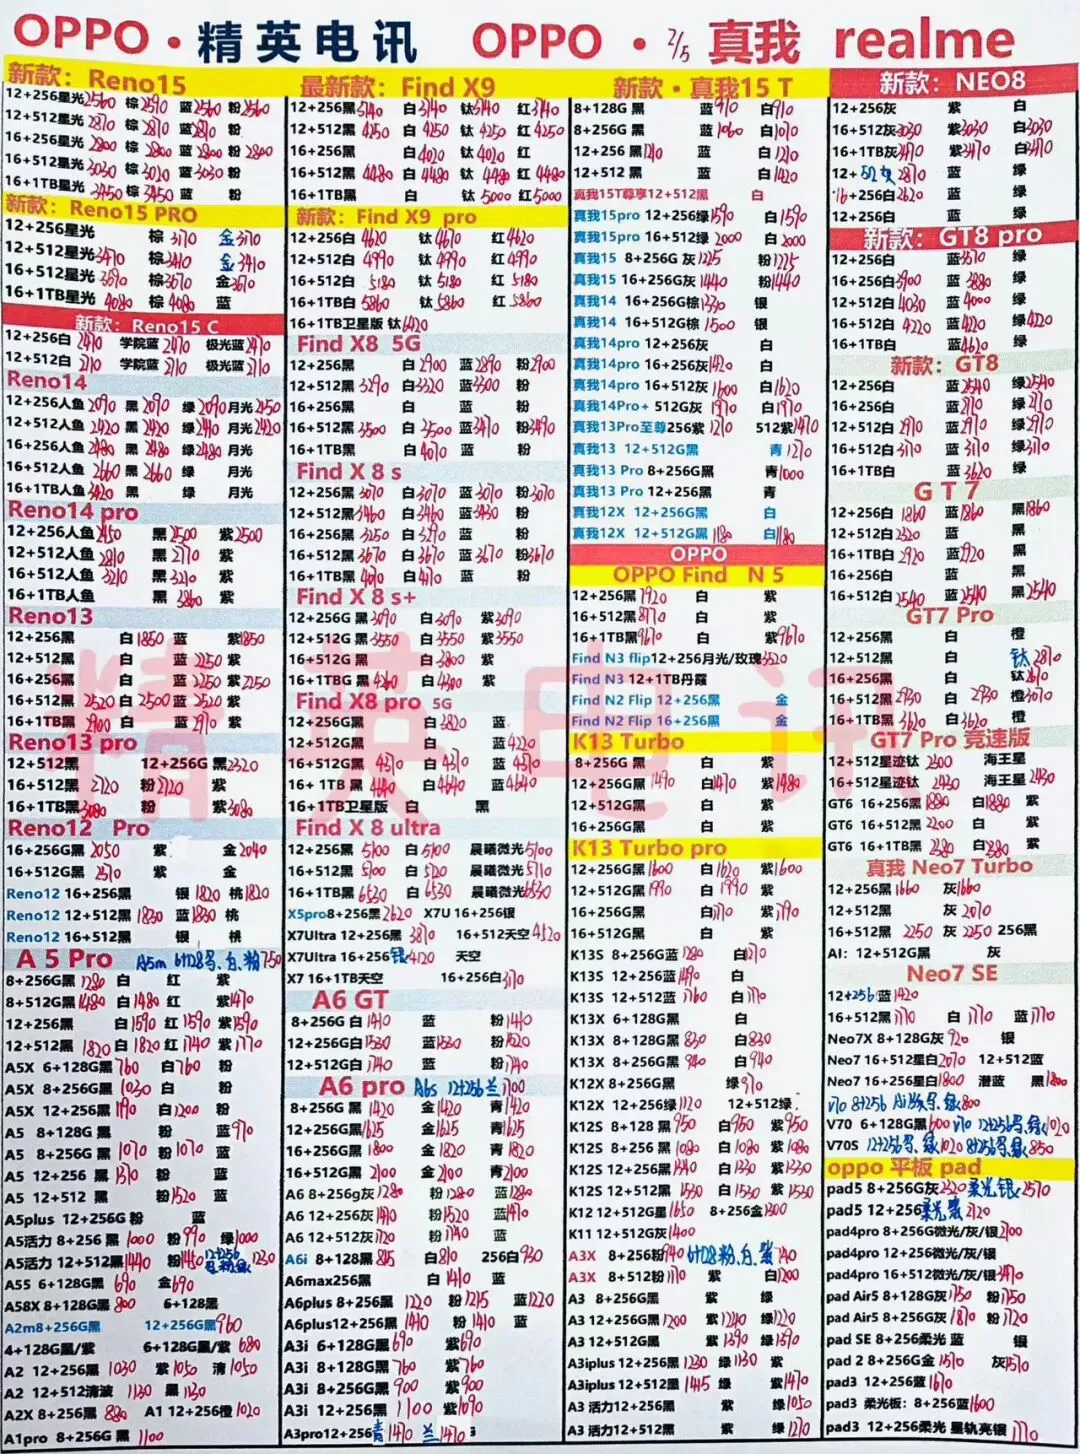 OPPO · 精英电讯 OPPO · 2/5 真我 realme
新款：Reno15
12+256星光2560 棕2590 蓝2560 粉2560
12+512星光2870 棕2870 蓝2870 粉
16+256星光2800 棕2800 蓝2800 粉2800
16+512星光3030 棕3020 蓝3030 粉
16+1TB星光3450 棕3450 蓝 粉
新款：Reno15 PRO
12+256星光 棕3170 金3170
12+512星光3470 棕3410 金3410
16+512星光3690 棕3670 金3670
16+1TB星光4080 棕4080 蓝
新款：Reno15 C
12+256白2470 学院蓝2470 极光蓝2470
12+512白2710 学院蓝2710 极光蓝2710
Reno14
12+256人鱼2090 黑2090 绿2090 月光2450
12+512人鱼2420 黑2420 绿2410 月光2420
16+256人鱼2480 黑2480 绿2480 月光
16+512人鱼2660 黑2660 绿 月光
16+1TB人鱼3420 黑 绿 月光
Reno14 pro
12+256人鱼2450 黑2500 紫2500
12+512人鱼2810 黑2770 紫
16+512人鱼3210 黑3210 紫
16+1TB人鱼 黑3860 紫
Reno13
12+256黑 白1850 蓝 紫1850
12+512黑 白 蓝2250 紫
16+256黑 白 蓝2250 紫2250
16+512黑2520 白2500 蓝2520 紫
16+1TB黑2900 白 蓝2970 紫
Reno13 pro
12+512黑 12+256G黑2320
16+512黑2720 粉2720 紫
16+1TB黑3080 粉 紫3080
Reno12 Pro
16+256G黑2050 紫 金2040
16+512G黑2570 紫 金
Reno12 16+256黑 银1820 桃1820
Reno12 12+512黑1830 蓝1830 桃
Reno12 16+512黑 银 桃
A 5 Pro A5m 6+128黑、白、粉750
8+256G黑1280 白 红 紫
8+512G黑1480 白1480 红 紫1470
12+256黑 白1590 红1590 紫1590
12+512黑1820 白1820 红1740 紫1770
A5X 6+128G黑760 白760 粉
A5X 8+256G黑1030 白 粉
A5X 12+256黑1190 白1200 粉
A5 8+128G黑 粉 蓝970
A5 8+256G黑1070 粉1070 蓝
A5 12+256黑1370 粉 蓝
A5 12+512黑 粉1520 蓝
A5plus 12+256G粉 蓝
A5活力 8+256黑1000 粉990 绿1000
A5活力 12+512黑1440 粉1450 12+256 1230
A55 8+128G黑690 金690
A58X 8+128G黑800 6+128黑
A2m8+256G黑 12+256G黑960
4+128G黑/紫 6+128G黑/紫680
A2 12+256黑1030 紫1050 清1050
A2 12+512清波1130 黑1130
A2X 8+256黑880 A1 12+256橙1020
A1pro 8+256G黑1100
最新款：Find X9
12+256黑3740 白3740 钛3740 红3740
12+512黑4250 白4250 钛4250 红4250
16+256黑 白4020 钛4020 红
16+512黑4480 白4480 钛4480 红4480
16+1TB黑 白 钛5000 红5000
新款：Find X9 pro
12+256白4620 钛4670 红4620
12+512白4990 钛4990 红4990
16+512白5180 钛5180 红5180
16+1TB白5860 钛5860 红5860
16+1TB卫星版 钛6420
Find X8 5G
12+256黑 白2900 蓝2890 粉2900
12+512黑3290 白3320 蓝3300 粉
16+256黑 白 蓝 粉
16+512黑3500 白3500 蓝3470 粉3490
16+1TB黑 白4070 蓝 粉
Find X 8 s
12+256黑3070 白3070 蓝3070 粉3070
12+512黑3460 白3460 蓝3430 粉
16+256黑3250 白3290 蓝 粉
16+512黑3670 白3670 蓝3670 粉3670
16+1TB黑4070 白4170 蓝 粉
Find X 8 s+
12+256G黑3090 白3090 紫3090
12+512G黑3550 白3550 紫3550
16+512G黑 白3800 紫
16+1TBG黑4260 白4300 紫
Find X8 pro 5G
12+256G黑 白3820 蓝
12+512G黑 白 蓝4220
16+512G黑4310 白4310 蓝4310
16+1TB黑4640 白4640 蓝4640
16+1TB卫星版 白 黑
Find X 8 ultra
12+256黑5100 白5100 晨曦微光5100
16+512黑5100 白5120 晨曦微光5110
16+1TB黑6530 白6530 晨曦微光6530
X5pro8+256黑2620 X7U 16+256银
X7Ultra 12+256黑3870 16+512天空4520
X7Ultra 16+256银4120 天空
X7 16+1TB天空 16+256白3170
A6 GT
8+256G白1410 蓝 粉1440
12+256G白1530 蓝1530 粉1520
12+512G白1740 蓝 粉1740
A6 pro A6s 12+256兰1700
8+256G黑1420 金1420 青1420
12+256G黑1625 金1625 青1625
16+256G黑1800 金1820 青1820
16+512G黑2100 金2100 青2100
A6 8+256g灰1280 粉1280 蓝1280
A6 12+256灰1470 粉1520 蓝1470
A6 12+512灰1720 粉1740 蓝
A6i 8+128黑815 白810 256白930
A6max256黑 白1410 蓝
A6plus 8+256黑1220 粉1215 蓝1220
A6plus12+256黑1410 粉1410 蓝
A3i 6+128G黑690 紫690
A3i 8+128G黑760 紫760
A3i 8+256G黑900 紫900
A3i 12+256G黑1100 紫1090
A3pro12+256青1470 兰1470
新款·真我15 T
8+128G黑 蓝910 白910
8+256G黑 蓝1060 白1070
12+256黑1210 蓝 白1210
12+512黑 蓝 白1420
真我15T尊享12+512黑 白
真我15pro 12+256绿1590 白1590
真我15pro 16+512绿2000 白2000
真我15 8+256G灰1225 粉1225
真我15 16+256G灰1440 粉1440
真我14 16+256G棕1330 银
真我14 16+512G棕1500 银
真我14pro 12+256灰 白
真我14pro 16+256灰1420 白
真我14pro 16+512灰1600 白1620
真我14Pro+ 512G灰1970 白1970
真我13Pro至尊256紫1210 512紫1470
真我13 12+512G黑 青1270
真我13 Pro 8+256G黑 青1000
真我13 Pro 12+256黑 青
真我12X 12+256G黑 白
真我12X 12+512G黑1180 白1180
OPPO
OPPO Find N 5
12+256黑7920 白 紫
16+512黑8770 白 紫
16+1TB黑9670 白 紫9670
Find N3 flip12+256月光/玫瑰3520
Find N3 12+1TB丹霞
Find N2 Flip 12+256黑 金
Find N2 Flip 16+256黑 金
K13 Turbo
8+256G黑 白 紫
12+256G黑1490 白1470 紫1480
12+512G黑 白 紫
16+256G黑 白 紫
K13 Turbo pro
12+256G黑1600 白1620 紫1600
12+512G黑1990 白1990 紫
16+256G黑 白1770 紫1790
16+512G黑 白 紫
K13S 8+256G蓝1280 白1270
K13S 12+256蓝1490 白
K13S 12+512蓝1760 白1770
K13X 6+128G黑 白
K13X 8+128G黑830 白830
K13X 8+256G黑940 白940
K12X 8+256G黑 绿970
K12X 12+256绿1120 12+512绿
K12S 8+128黑950 白950 紫950
K12S 8+256黑1080 白1080 紫1080
K12S 12+256黑1340 白1330 紫1330
K12S 12+512黑1530 白1530 紫1530
K12 12+512G星1650 8+256金1300
K11 12+512G灰1400
A3X 8+256粉940 6+128粉、白、紫740
A3X 8+512粉1170 紫 白1200
A3 8+256G黑 紫 绿
A3 12+256G黑1200 紫1240 绿1220
A3 12+512G黑 紫1390 绿1390
A3iplus 12+256黑1230 绿1130 紫
A3iplus 12+512黑1415 绿 紫1470
A3 活力12+256黑 紫 绿1050
A3 活力12+512黑 紫 绿1270
新款：NEO8
12+256灰 紫 白
16+512灰3030 紫3030 白3030
16+1TB灰3470 紫3470 白3470
新款：GT8 pro
12+256白 蓝3570 绿
16+256白3900 蓝3880 绿
12+512白4030 蓝4000 绿
16+512白4220 蓝4220 绿4220
16+1TB白 蓝4620 绿
新款：GT8
12+256白 蓝2540 绿2540
16+256白 蓝2710 绿2710
12+512白2910 蓝2910 绿2910
16+512白3170 蓝3170 绿3170
16+1TB白 蓝3620 绿
G T 7
12+256白1860 蓝1860 黑1860
12+512白2320 蓝 黑
16+1TB白2920 蓝2920 黑
16+256白 蓝 黑
16+512白2540 蓝2540 黑2540
GT7 Pro
12+256黑 白 橙
12+512黑 白 钛2870
16+256黑 白 钛2670
16+512黑2930 白2930 橙3070
16+1TB黑3620 白3620 橙
GT7 Pro 竞速版
12+512星迹钛2500 海王星
12+512星迹钛2430 海王星2430
GT6 16+256黑1880 白1880 紫
GT6 16+512黑2200 白 紫
GT6 16+1TB黑2380 白2380 紫
真我 Neo7 Turbo
12+256黑1660 灰1660
12+512黑 灰2070
16+512黑2250 灰2250 256黑
AI：12+512G黑 灰
Neo7 SE
12+256蓝1420
16+512黑1770 白1770 蓝1770
Neo7X 8+128G灰920 银
Neo7 16+512星白2070 12+512蓝
Neo7 16+256星白1800 潜蓝 黑1800
V70 8+256 Ai版黑、绿800
V70 6+128G黑600 V70 12+256黑、绿1020
V70S 12+256黑、绿1020 8+256黑、绿850
oppo 平板 pad
pad5 8+256G灰2320 柔光银2570
pad5 12+256柔光紫2720
pad4pro 8+256G微光/灰/银2100
pad4pro 12+256微光/灰/银
pad4pro 16+512微光/灰/银3470
pad Air5 8+128G灰1750 粉1750
pad Air5 8+256G灰1870 粉1720
pad SE 8+256柔光 蓝 银
pad 2 8+256G金1510 灰1570
pad3 12+256蓝1670
pad3 柔光板：8+256蓝1600
pad3 12+256柔光 星轨亮银1770
精英电讯